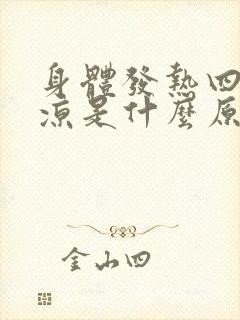 身體發熱四
涼是什麼原
金山四